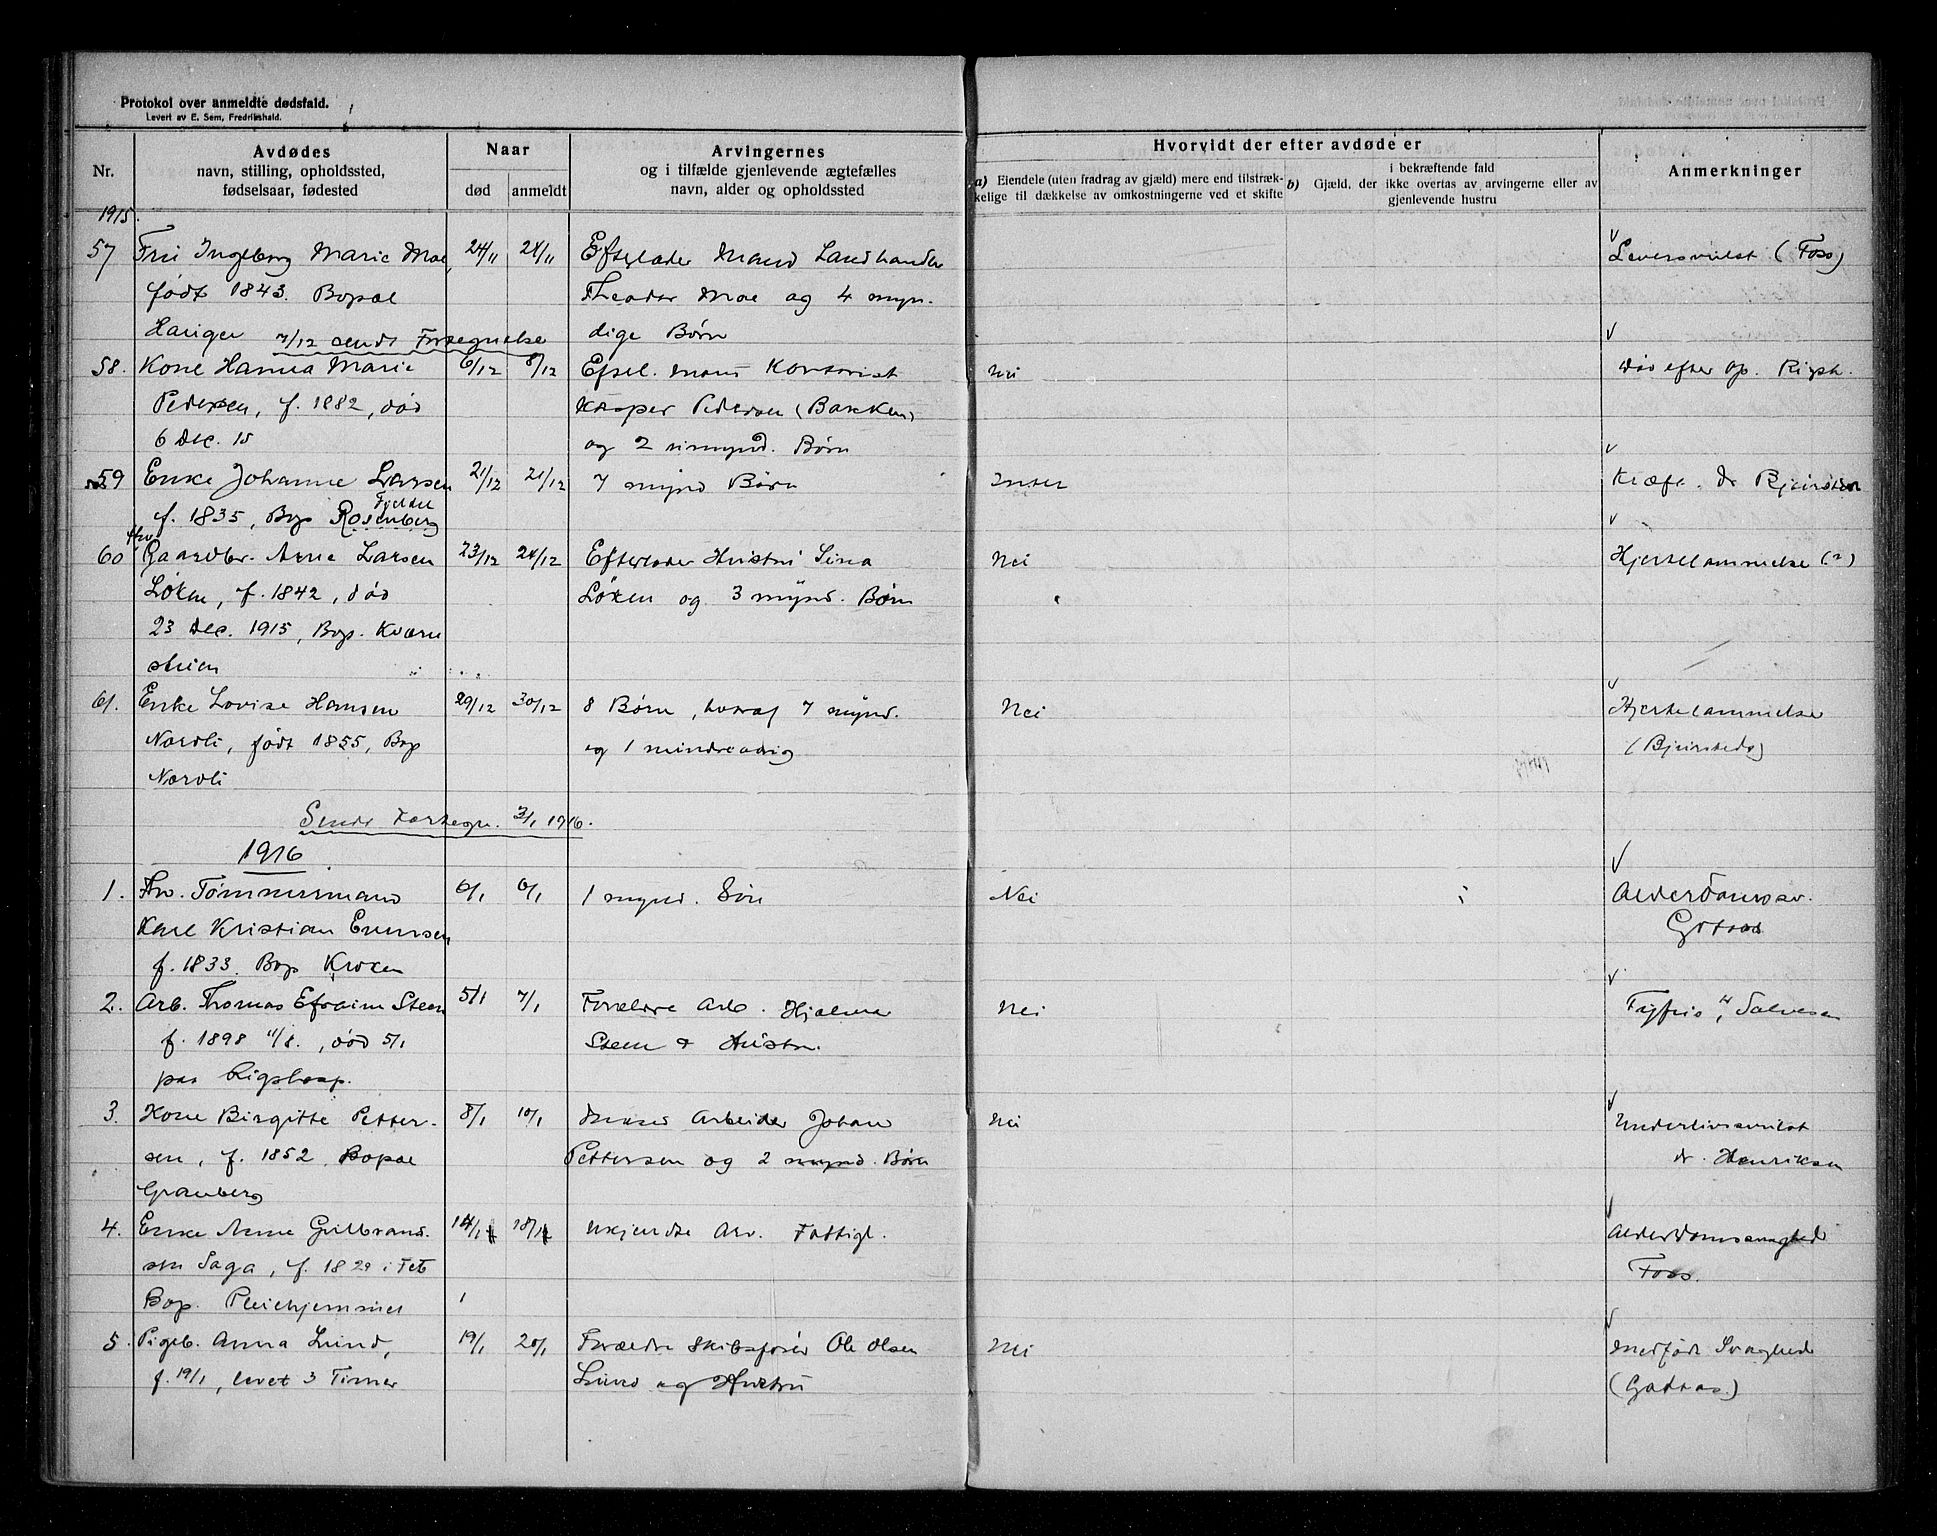 Protokol over anmeldte dødsfald.
Levert av E. Sem, Fredrikshald.
Nr.
Avdødes
navn, stilling, opholdssted,
fødselsaar, fødested
Naar
død
anmeldt
Arvingernes
og i tilfælde gjenlevende ægtefælles
navn, alder og opholdssted
Hvorvidt der efter avdøde er
a) Eiendele (uten fradrag av gjæld) mere end tilstræk-
kelige til dækkelse av omkostningerne ved et skifte
i bekræftende fald
b) Gjæld, der ikke overtas av arvingerne eller av
gjenlevende hustru
Anmerkninger
1915.
57 Fru Ingeborg Marie Moe, 24/11 24/11 Efterlader Mand Landhandler
født 1843. Bopæl Theodor Moe og 4 myn-
7/12 sendt Fortegnelse dige Børn
Leversvulst (Foss)
58. Kone Hanna Marie 6/12 8/12 Efterl. Mand Kontorist Nei
Pedersen, f. 1882, død Kasper Pedersen (Bakken)
6 Dec. 15 og 2 umynd. Børn
Død efter Op. Rigsh.
59 Enke Johanne Larsen 21/12 21/12 7 mynd Børn Intet
Fjeldet
f. 1835, Bop Rosenberg
Kræft. Dr
60 Fhv Gaardbr. Arne Larsen 23/12 24/12 Efterlader Hustru Sina Nei
Løken, f. 1842, død Løken og 3 mynd. Børn
23 Dec. 1915, Bop. Kværn
stuen
Hjertelammelse (?)
61. Enke Lovise Hansen 29/12 30/12 8 Børn, hvoraf 7 mynd. Nei
Nordli, født 1855, Bop og 1 mindreaarig
Nordli
Hjertelammelse
Sendt Fortegn. 3/1 1916.
1916
1. Fhv. Tømmermand 6/1 6/1 1 mynd. Søn Nei
Karl Kristian Evensen
f. 1833. Bop Kroken
Alderdomssv.
Gotaas
2. Arb. Thomas Efraim Steen 5/1 7/1 Forældre Arb. Hjalmar Nei
f. 1898 11/8., død 5/1 Steen & Hustru.
paa Rigshosp.
Salvesen
3. Kone Birgitte Petter- 8/1 10/1 Arbeider Johan Nei
sen, f. 1852 Bopæl Pettersen og 2 mynd. Børn
Granberg
Underlivssvulst
dr. Henriksen
4. Enke Anne Gulbrand- 14/1 18/1 Ukjendte Arv. Fattigl.
sen Saga, f. 1829 i Fet
Bop. Pleiehjemmet
Alderdomssvaghed
Foss.
5. Pigeb. Anna Lund, 19/1 20/1 Forældre Skibsfører Ole Olsen Nei
f. 19/1, levet 3 Timer Lund og Hustru
Medfødt Svaghed
(Gottaas.)